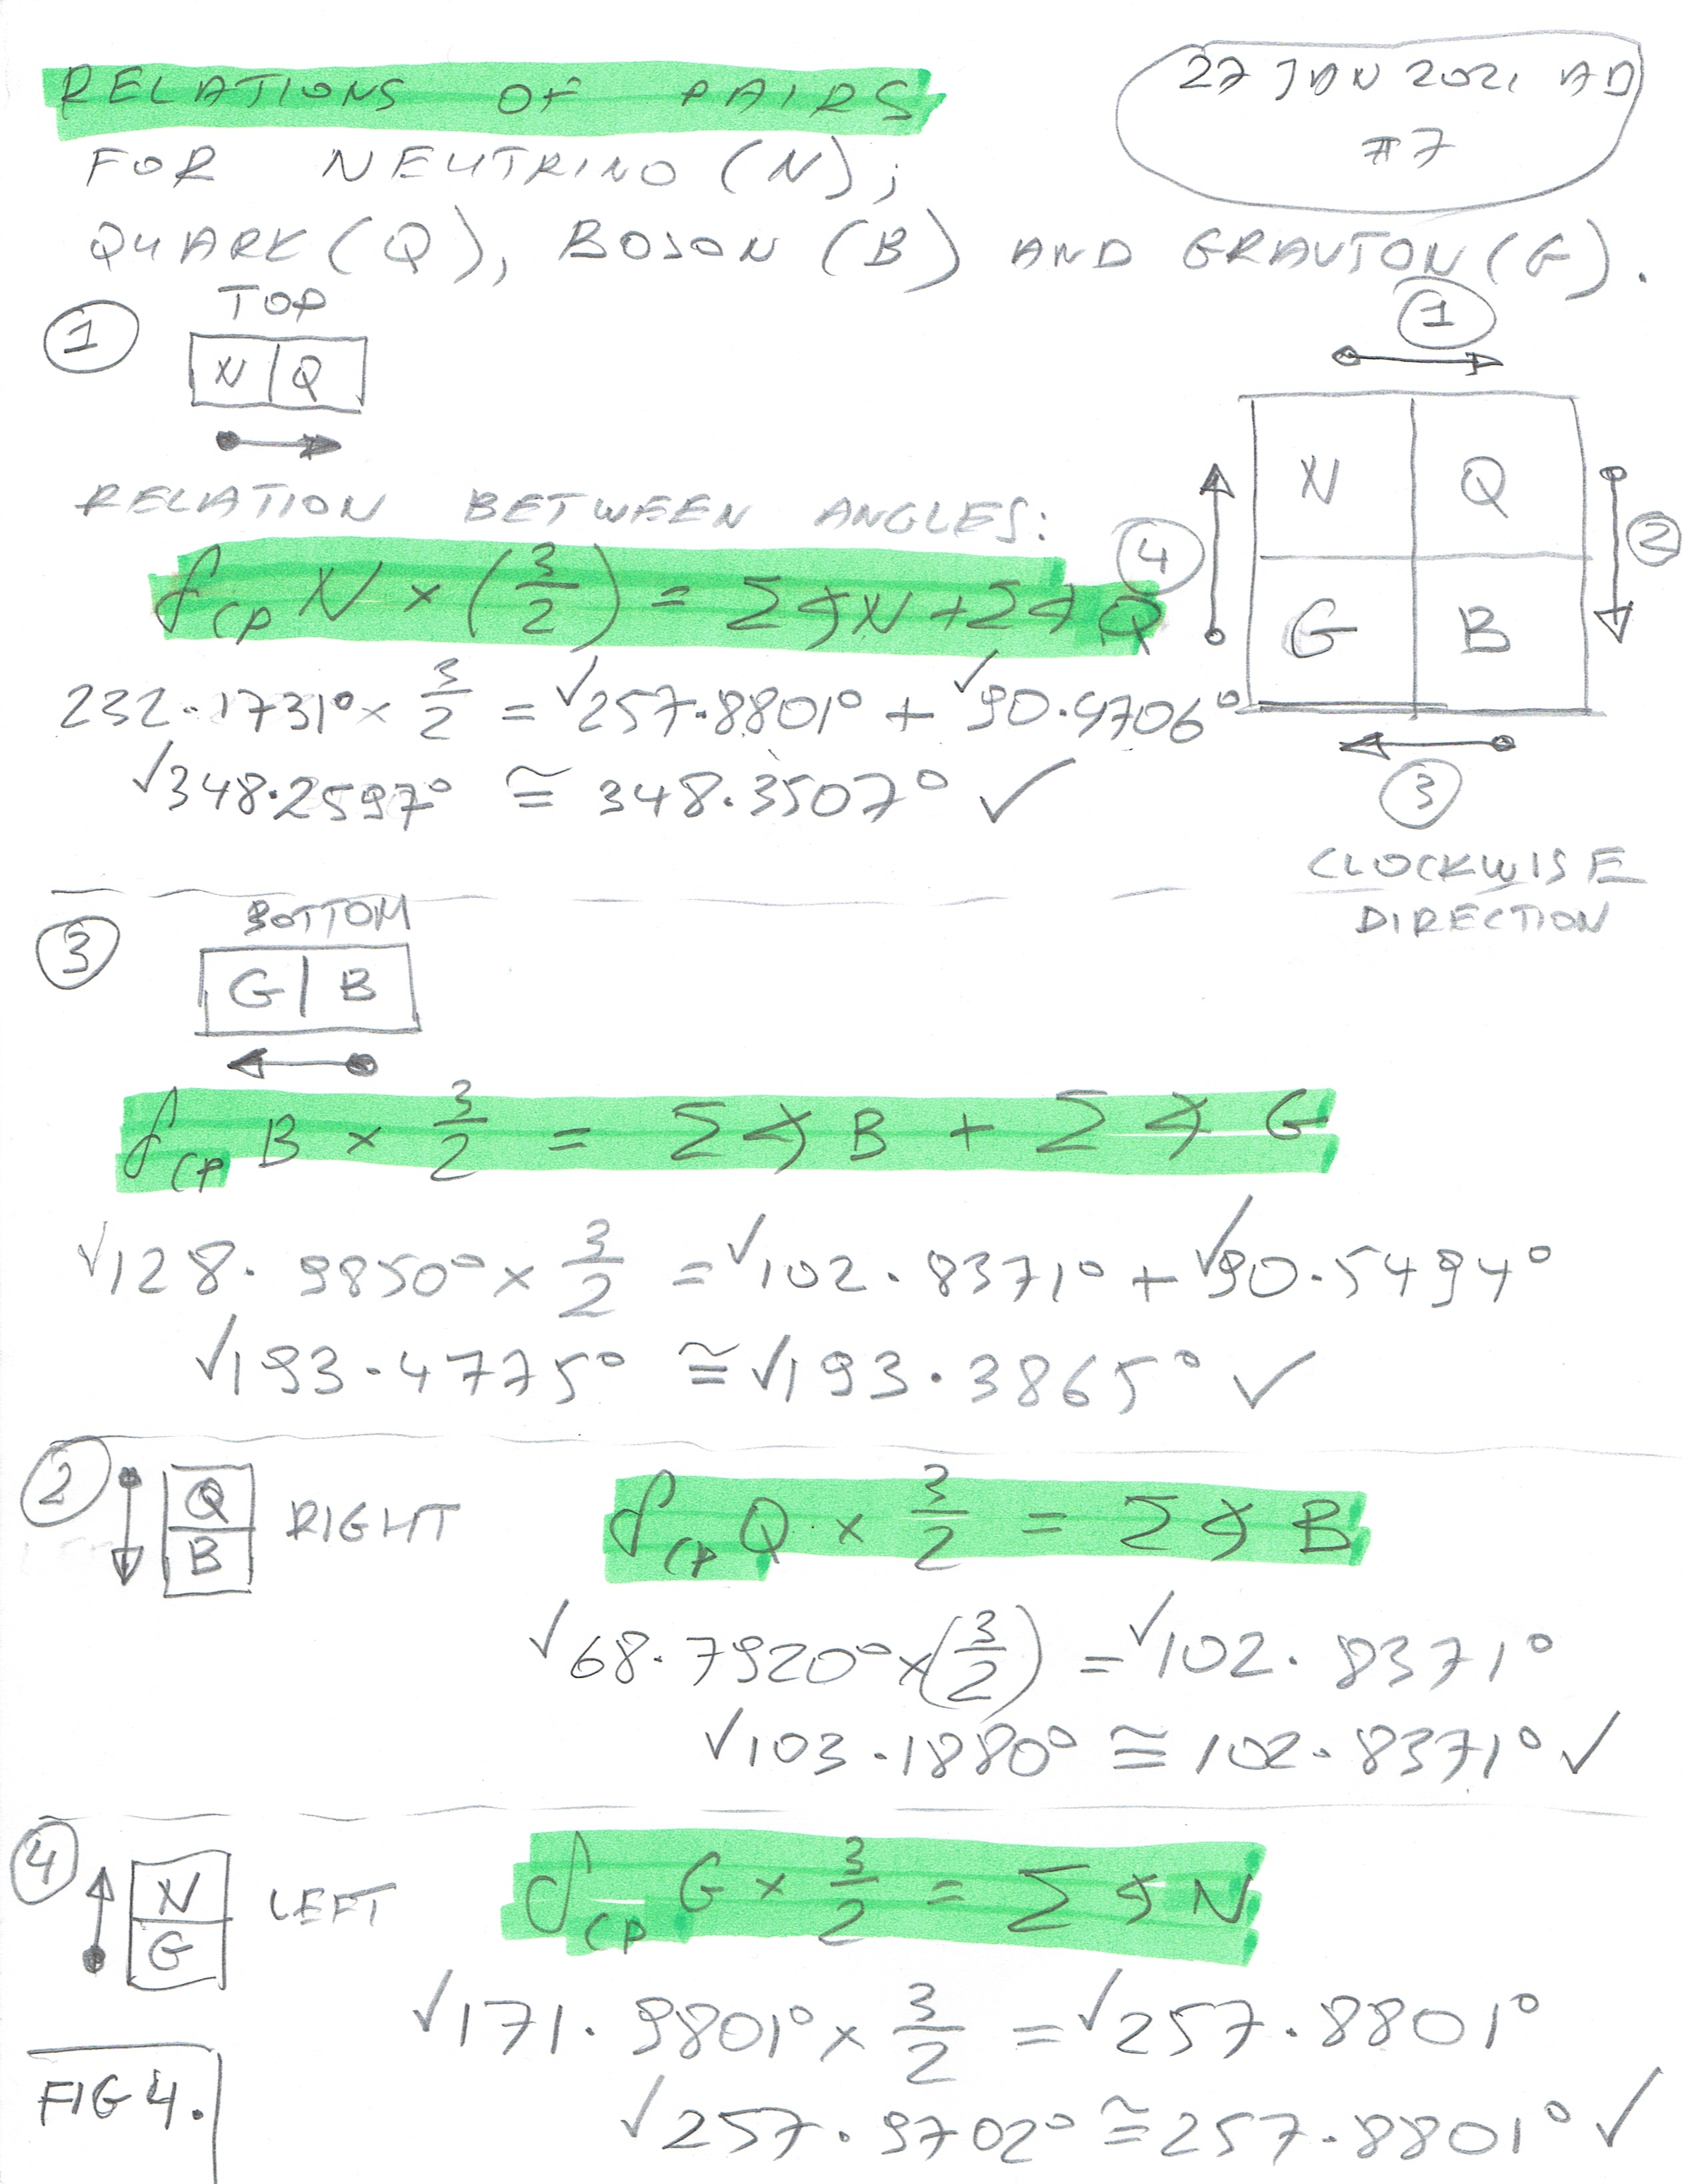 RELATIONS OF PAIRS
27 JAN 2021 AD
#7
FOR NEUTRINO (N);
QUARK (Q), BOSON (B) AND GRAVITON (G).
① TOP
N | Q
RELATION BETWEEN ANGLES:
δCP N × (3/2) = Σ∢N + Σ∢Q
232.1731° × 3/2 = √257.8801° + √90.4706°
√348.2597° ≅ 348.3507° ✓
①
N Q
④ ②
G B
③
CLOCKWISE
DIRECTION
③ BOTTOM
G | B
δCP B × 3/2 = Σ∢B + Σ∢G
√128.9850° × 3/2 = √102.8371° + √90.5494°
√193.4775° ≅ √193.3865° ✓
② Q
B
RIGHT
δCP Q × 3/2 = Σ∢B
√68.7920° × (3/2) = √102.8371°
√103.1880° ≅ 102.8371° ✓
④ N
G
LEFT
δCP G × 3/2 = Σ∢N
√171.9801° × 3/2 = √257.8801°
√257.9702° ≅ 257.8801° ✓
FIG 4.